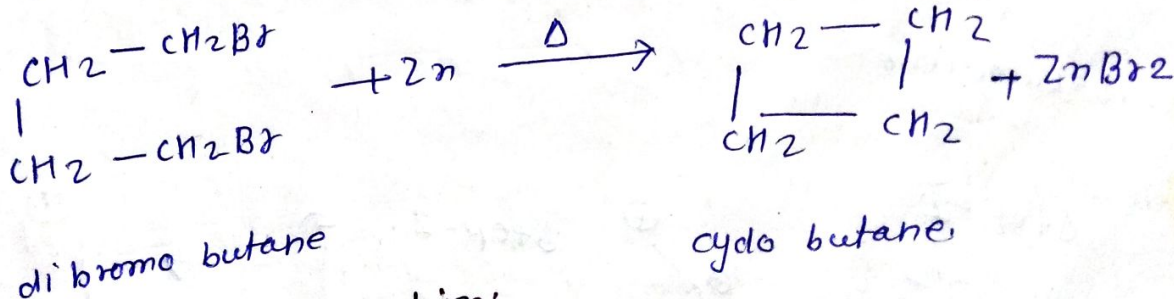 CH2 — CH2Br
CH2 — CH2Br
+ Zn
Δ
CH2 — CH2
CH2 — CH2
+ ZnBr2
di bromo butane
cyclo butane,